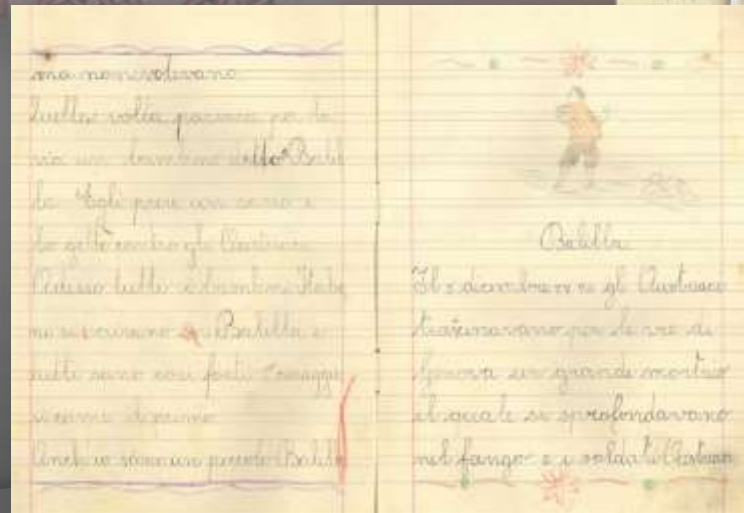 ma non volevano
Quella volta passava per la
via un bambino detto Balil
la Egli prese un sasso e
lo gettò contro gli
Adesso tutti i bambini Italia
ni si Balilla e
tutti sono così forti
come il primo
sono un piccolo Balilla
Balilla
Il 5 dicembre gl Austriaci
per le vie di
Genova un grande
il quale si sprofondavano
nel fango e i soldati